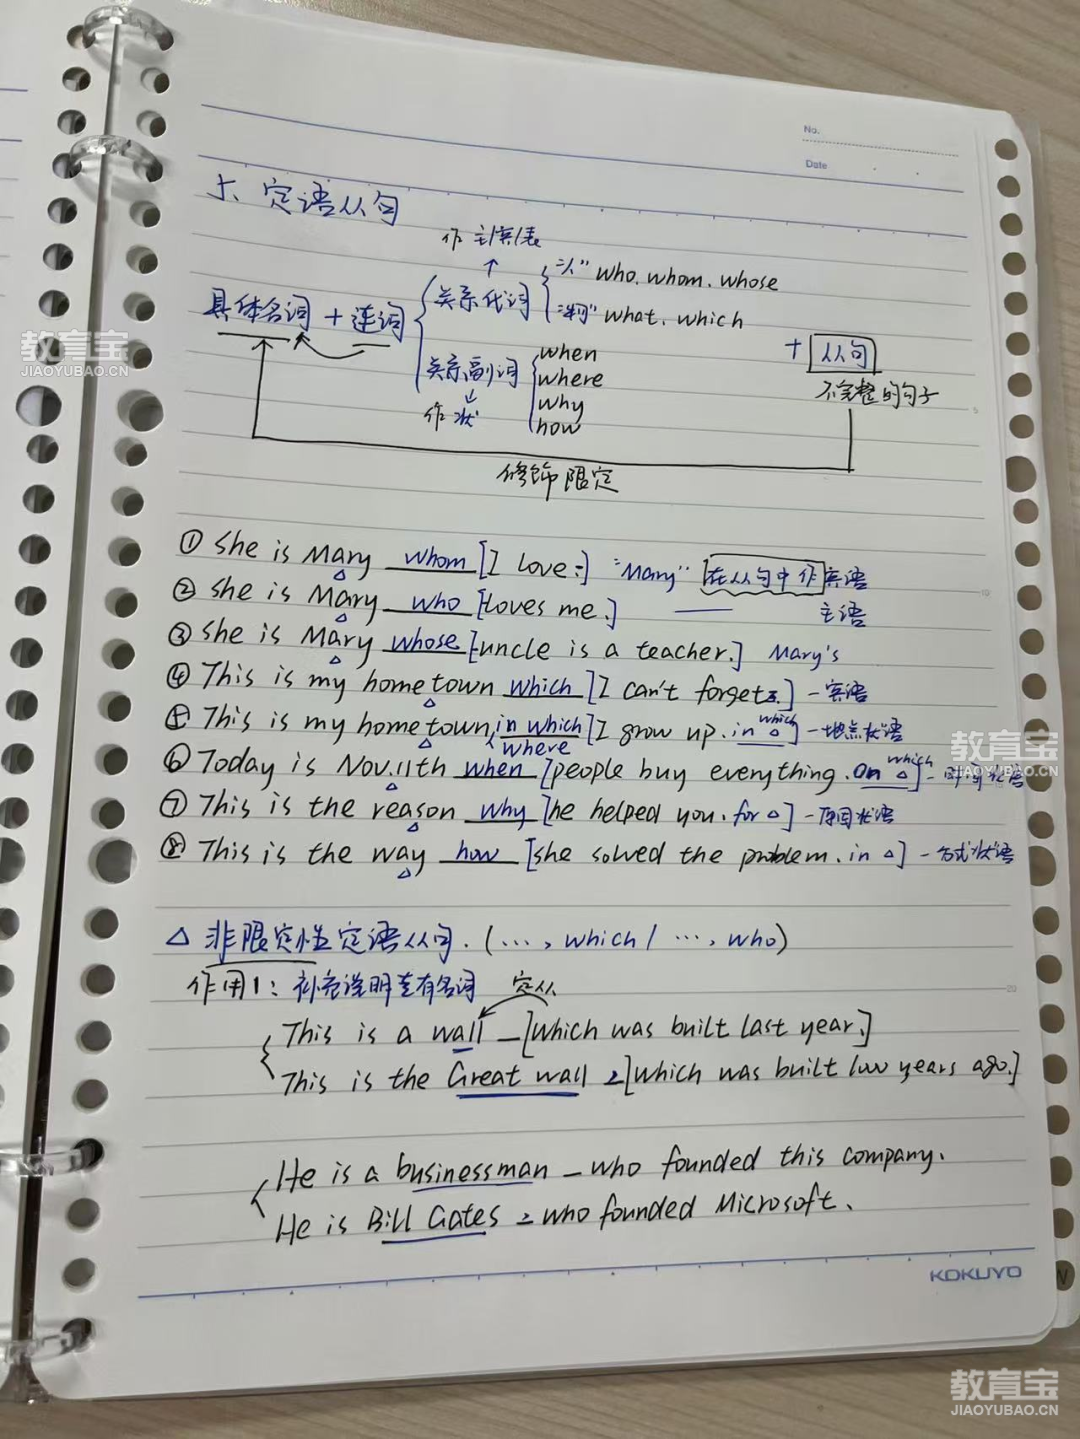 No.
Date
六、定语从句
作 主/宾/表
具体名词 + 连词 { 关系代词 { "人" who. whom. whose
"物" what. which
关系副词 { when
where
why
how
作状
+ 从句
不完整的句子
修饰限定
① She is Mary whom [I love.] "Mary" 在从句中作宾语
② She is Mary who [loves me.] —— 主语
③ She is Mary whose [uncle is a teacher.] Mary's
④ This is my hometown which [I can't forget.] - 宾语
⑤ This is my hometown in which [I grow up. in which △] - 地点状语
where
⑥ Today is Nov.11th when [people buy everything. on which △] - 时间状语
⑦ This is the reason why [he helped you. for △] - 原因状语
⑧ This is the way how [she solved the problem. in △] - 方式状语
△ 非限定性定语从句. (…, which / …, who)
作用1: 补充说明专有名词 定从
This is a wall _ [which was built last year.]
This is the Great wall , [which was built years ago.]
He is a businessman _ who founded this company.
He is Bill Gates , who founded Microsoft.
KOKUYO
教育宝
JIAOYUBAO.CN
教育宝
JIAOYUBAO.CN
教育宝
JIAOYUBAO.CN
教育宝
JIAOYUBAO.CN